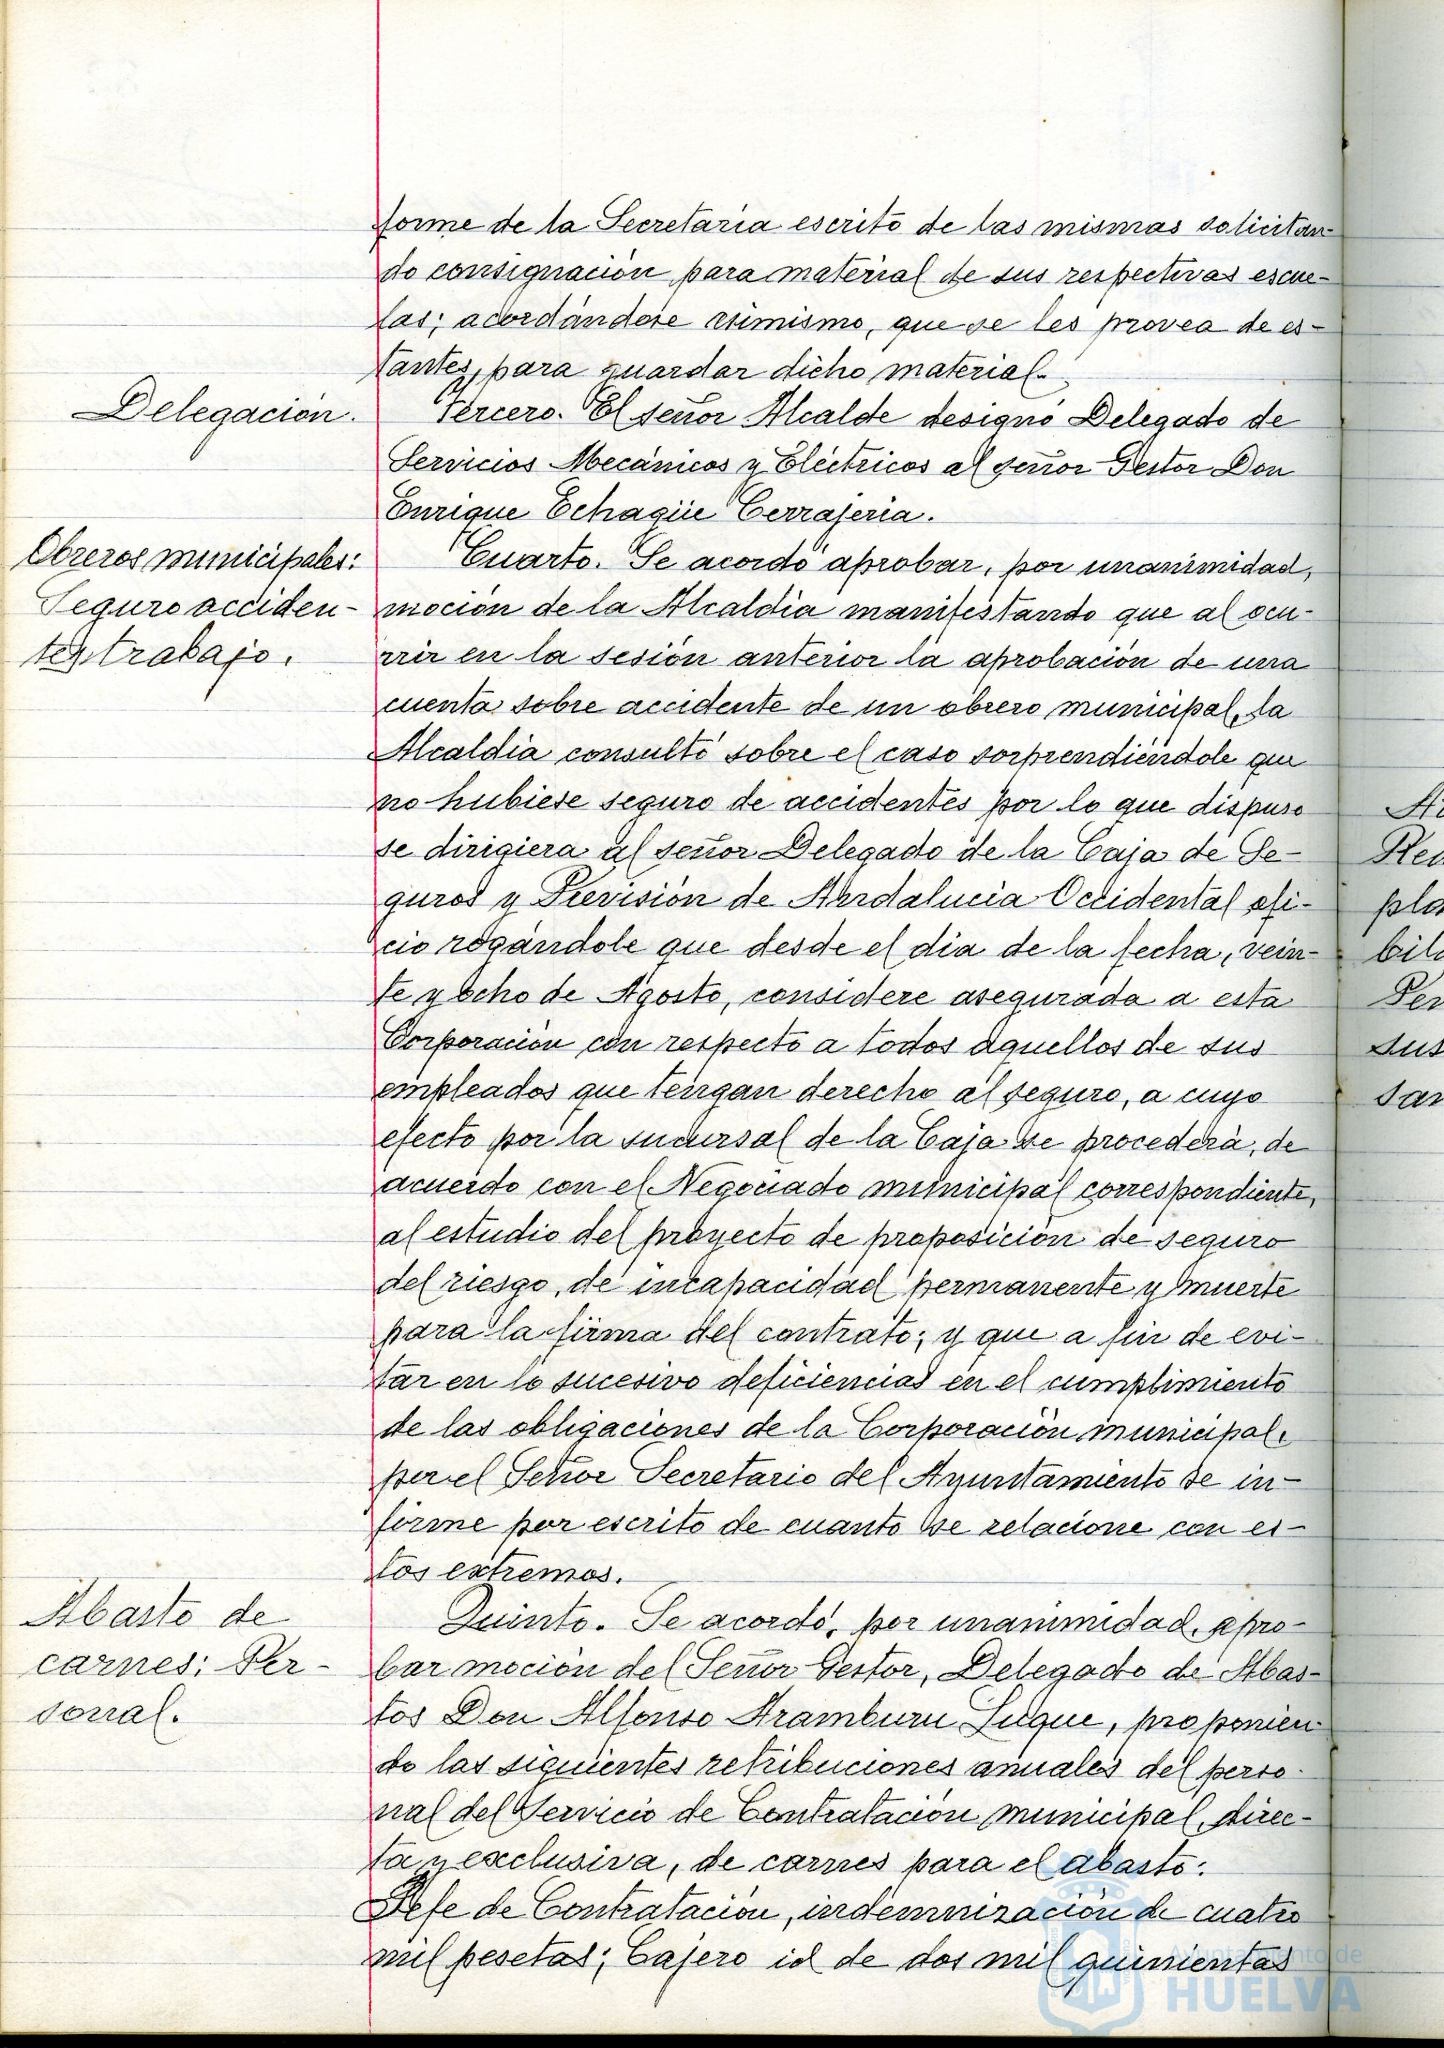 forme de la Secretaría escrito de las mismas solicitan-
do consignación para material de sus respectivas escue-
las; acordándose asimismo, que se les provea de es-
tantes, para guardar dicho material.
Delegación.
Tercero. El señor Alcalde designó Delegado de
Servicios Mecánicos y Eléctricos al señor Gestor Don
Enrique Echagüe Cerrajería.
Obreros municipales:
Seguro acciden-
tes trabajo.
Cuarto. Se acordó aprobar, por unanimidad,
moción de la Alcaldía manifestando que al ocu-
rrir en la sesión anterior la aprobación de una
cuenta sobre accidente de un obrero municipal, la
Alcaldía consultó sobre el caso sorprendiéndole que
no hubiese seguro de accidentes por lo que dispuso
se dirigiera al señor Delegado de la Caja de Se-
guros y Previsión de Andalucía Occidental ofi-
cio rogándole que desde el día de la fecha, vein-
te y ocho de Agosto, considere asegurada a esta
Corporación con respecto a todos aquellos de sus
empleados que tengan derecho al seguro, a cuyo
efecto por la sucursal de la Caja se procederá, de
acuerdo con el Negociado municipal correspondiente,
al estudio del proyecto de proposición de seguro
del riesgo, de incapacidad permanente y muerte
para la firma del contrato; y que a fin de evi-
tar en lo sucesivo deficiencias en el cumplimiento
de las obligaciones de la Corporación municipal,
por el Señor Secretario del Ayuntamiento se in-
forme por escrito de cuanto se relacione con es-
tos extremos.
Abasto de
carnes: Per-
sonal.
Quinto. Se acordó, por unanimidad, apro-
bar moción del Señor Gestor, Delegado de Abas-
tos Don Alfonso Aramburu Luque, proponien-
do las siguientes retribuciones anuales del perso-
nal del Servicio de Contratación municipal, direc-
ta y exclusiva, de carnes para el abasto:
Jefe de Contratación, indemnización de cuatro
mil pesetas; Cajero id de dos mil quinientas
Ayuntamiento de
HUELVA